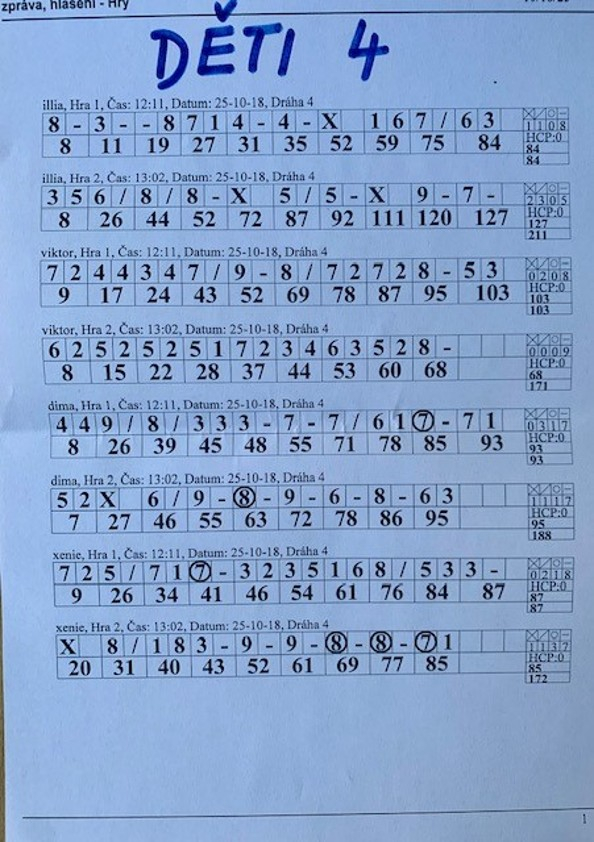 zpráva, hlášení - Hry
DĚTI 4
illia, Hra 1, Čas: 12:11, Datum: 25-10-18, Dráha 4
8 - 3 - - 8 7 1 4 - 4 - X 1 6 7 / 6 3
8 11 19 27 31 35 52 59 75 84
X / O -
1 1 0 8
HCP:0
84
84
illia, Hra 2, Čas: 13:02, Datum: 25-10-18, Dráha 4
3 5 6 / 8 / 8 - X 5 / 5 - X 9 - 7 -
8 26 44 52 72 87 92 111 120 127
X / O -
2 3 0 5
HCP:0
127
211
viktor, Hra 1, Čas: 12:11, Datum: 25-10-18, Dráha 4
7 2 4 4 3 4 7 / 9 - 8 / 7 2 7 2 8 - 5 3
9 17 24 43 52 69 78 87 95 103
X / O -
0 2 0 8
HCP:0
103
103
viktor, Hra 2, Čas: 13:02, Datum: 25-10-18, Dráha 4
6 2 5 2 5 2 5 1 7 2 3 4 6 3 5 2 8 -
8 15 22 28 37 44 53 60 68
X / O -
0 0 0 9
HCP:0
68
171
dima, Hra 1, Čas: 12:11, Datum: 25-10-18, Dráha 4
4 4 9 / 8 / 3 3 3 - 7 - 7 / 6 1 7 - 7 1
8 26 39 45 48 55 71 78 85 93
X / O -
0 3 1 7
HCP:0
93
93
dima, Hra 2, Čas: 13:02, Datum: 25-10-18, Dráha 4
5 2 X 6 / 9 - 8 - 9 - 6 - 8 - 6 3
7 27 46 55 63 72 78 86 95
X / O -
1 1 1 7
HCP:0
95
188
xenie, Hra 1, Čas: 12:11, Datum: 25-10-18, Dráha 4
7 2 5 / 7 1 7 - 3 2 3 5 1 6 8 / 5 3 3 -
9 26 34 41 46 54 61 76 84 87
X / O -
0 2 1 8
HCP:0
87
87
xenie, Hra 2, Čas: 13:02, Datum: 25-10-18, Dráha 4
X 8 / 1 8 3 - 9 - 9 - 8 - 8 - 7 1
20 31 40 43 52 61 69 77 85
X / O -
1 1 3 7
HCP:0
85
172
1